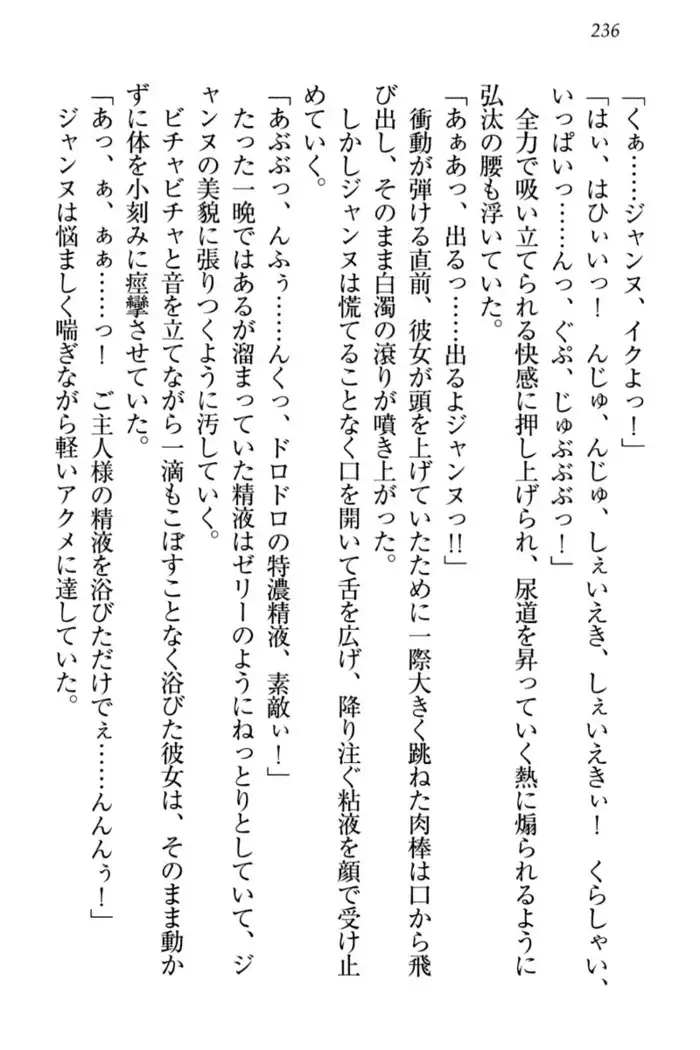 236
「くぁ……ジャンヌ、イクよっ！」
「はぃ、はひぃいっ！　んじゅ、んじゅ、しぇいえき、しぇいえきぃ！　くらしゃい、
いっぱいっ……んっ、ぐぷ、じゅぶぶぶっ！」
　全力で吸い立てられる快感に押し上げられ、尿道を昇っていく熱に煽られるように
弘汰の腰も浮いていた。
「あぁあっ、出るっ……出るよジャンヌっ!!」
　衝動が弾ける直前、彼女が頭を上げていたために一際大きく跳ねた肉棒は口から飛
び出し、そのまま白濁の滾りが噴き上がった。
　しかしジャンヌは慌てることなく口を開いて舌を広げ、降り注ぐ粘液を顔で受け止
めていく。
「あぶぶっ、んふぅ……んくっ、ドロドロの特濃精液、素敵ぃ！」
　たった一晩ではあるが溜まっていた精液はゼリーのようにねっとりとしていて、ジ
ャンヌの美貌に張りつくように汚していく。
　ビチャビチャと音を立てながら一滴もこぼすことなく浴びた彼女は、そのまま動か
ずに体を小刻みに痙攣させていた。
「あっ、ぁ、ぁぁ……っ！　ご主人様の精液を浴びただけでぇ……んんんぅ！」
　ジャンヌは悩ましく喘ぎながら軽いアクメに達していた。